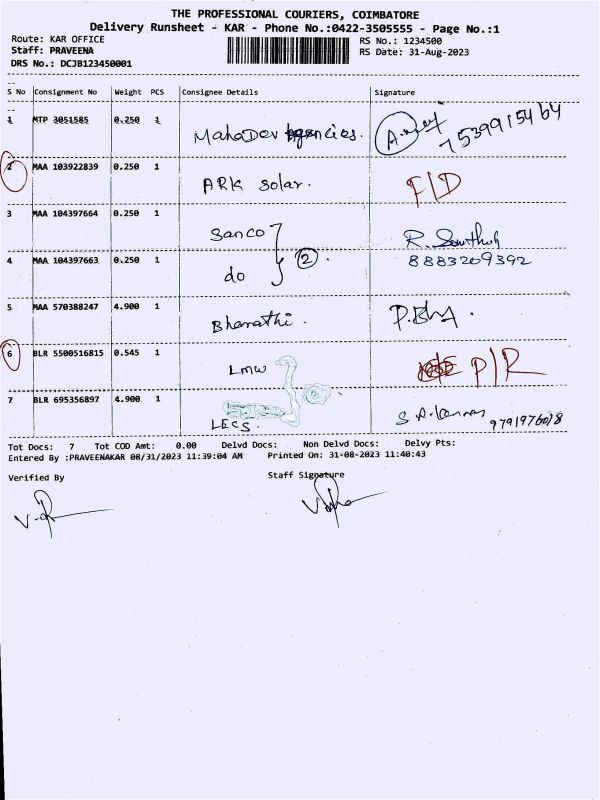 THE PROFESSIONAL COURIERS, COIMBATORE
Delivery Runsheet - KAR - Phone No.:0422-3505555 - Page No.:1
Route: KAR OFFICE RS No.: 1234500
Staff: PRAVEENA RS Date: 31-Aug-2023
DRS No.: DCJB123450001
S No Consignment No Weight PCS Consignee Details Signature
1 MTP 3051585 0.250 1 Mahadev Agencies. 7539915464
2 MAA 103922839 0.250 1 ARK Solar. F/D
3 MAA 104397664 0.250 1 Sanco R.
4 MAA 104397663 0.250 1 do 2 8883209392
5 MAA 570388247 4.900 1 Bharathi.
6 BLR 5500516815 0.545 1 LMW P/R
7 BLR 695356897 4.900 1 LECS.
Tot Docs: 7 Tot COD Amt: 0.00 Delvd Docs: Non Delvd Docs: Delvy Pts:
Entered By :PRAVEENAKAR 08/31/2023 11:39:04 AM Printed On: 31-08-2023 11:40:43
Verified By Staff Signature